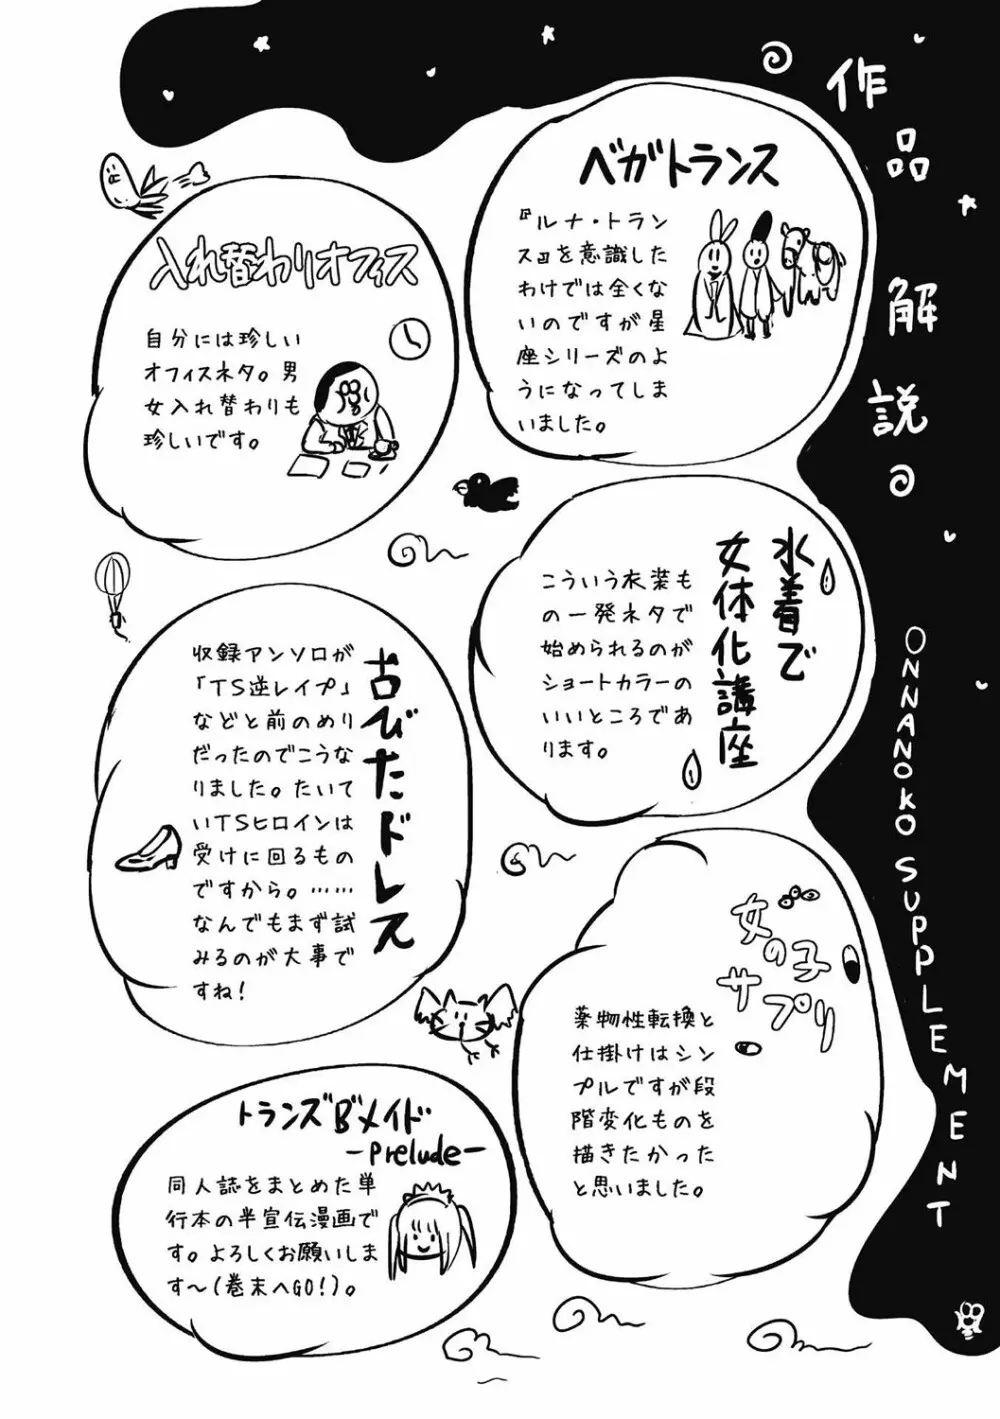 作品解説の
ONNANOKO SUPPLEMENT
ベガトランス
『ルナ・トラン
ス』を意識した
わけでは全くな
いのですが星
座シリーズのよ
うになってしま
いました。
入れ替わりオフィス
自分には珍しい
オフィスネタ。男
女入れ替わりも
珍しいです。
水着で
女体化講座
こういう衣装も
の一発ネタで
始められるのが
ショートカラーの
いいところであ
ります。
古びたドレス
収録アンソロが
「TS逆レイプ」
などと前のめり
だったのでこうな
りました。たいて
いTSヒロインは
受けに回るもの
ですから。……
なんでもまず試
みるのが大事で
すね!
女の子
サプリ
薬物性転換と
仕掛けはシン
プルですが段
階変化ものを
描きたかった
と思いました。
トランズB'メイド
-Prelude-
同人誌をまとめた単
行本の半宣伝漫画で
す。よろしくお願いしま
す～(巻末へGO!)。